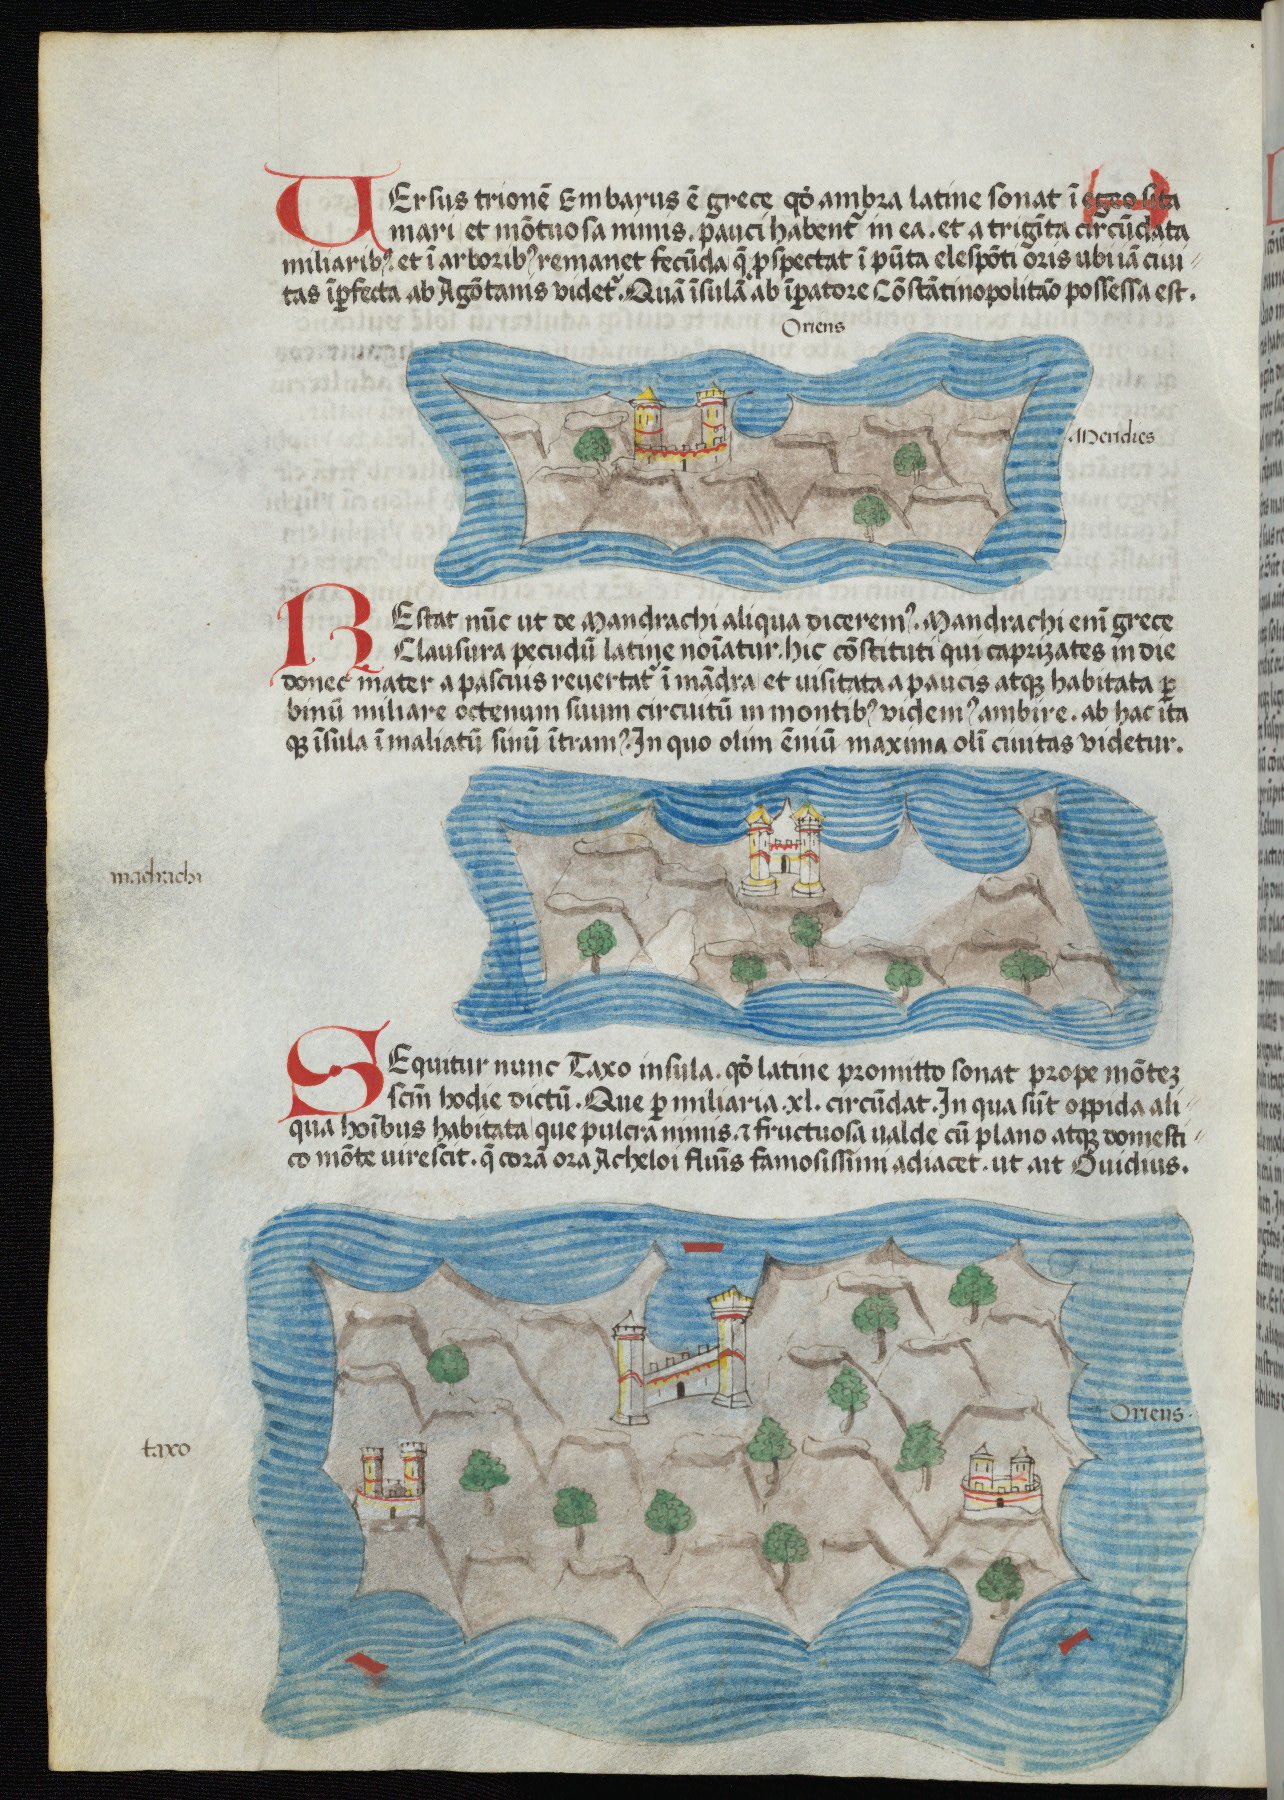 UErsus trionē Embarus ē grece qđ ambra latine sonat ī egeo sita
mari et mōtuosa nimis. pauci habent᷑ in ea. et a trigīta circūdata
miliarib᷒. et ī arborib᷒ remanet fecūda q̄ ꝓspectat ī pūta elespōti oris ubi iā ciui〃
tas īꝑfecta ab Agōtanis videt᷑. Quā īsulā ab īꝑatore Cōstātinopolitāo possessa est.
Oriens
Meridies
REstat nūc ut de Mandrachi aliqua dicerem᷒. Mandrachi enī grece
Clausura pecudū latine noīatur. hic cōstituti qui caprizates in die
donec mater a pascuis reuertat᷑ ī mādra et uisitata a paucis atqꝫ habitata ꝑ
binū miliare octenum suum circuitū in montib᷒ videm᷒ ambire. ab hac ita
qꝫ īsula ī maliatū sinū ītram᷒. In quo olim ēniū maxima olī ciuitas videtur.
madrachi
SEquitur nunc Taxo insula. qđ latine promitto sonat prope mōteꝫ
scm̄ hodie dictū. Que ꝑ miliaria .xl. circūdat. In qua sūt oppida ali〃
qua hoībus habitata que pulcra nimis. ⁊ fructuosa ualde cū plano atqꝫ domesti〃
co mōte uirescit. q̄ corā ora Acheloi fluīs famosissimi adiacet. ut ait Ouidius.
Oriens.
taxo